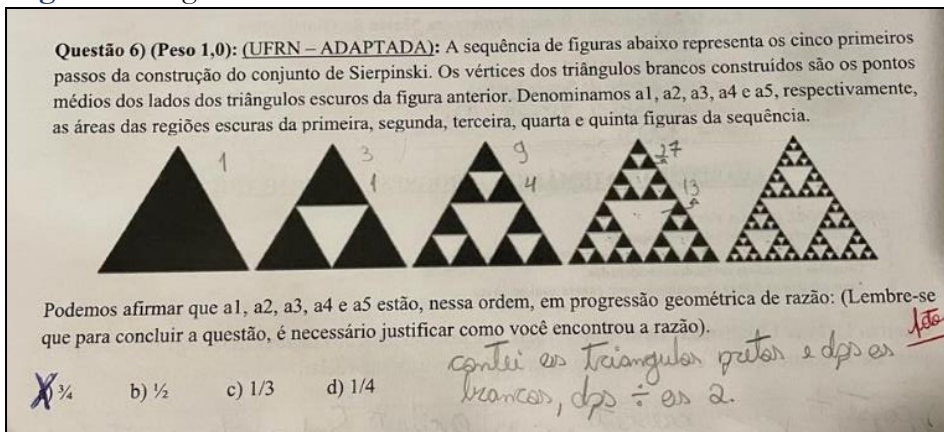 Questão 6) (Peso 1,0): (UFRN – ADAPTADA): A sequência de figuras abaixo representa os cinco primeiros
passos da construção do conjunto de Sierpinski. Os vértices dos triângulos brancos construídos são os pontos
médios dos lados dos triângulos escuros da figura anterior. Denominamos a1, a2, a3, a4 e a5, respectivamente,
as áreas das regiões escuras da primeira, segunda, terceira, quarta e quinta figuras da sequência.
1 3 9 27
1 4 13
Podemos afirmar que a1, a2, a3, a4 e a5 estão, nessa ordem, em progressão geométrica de razão: (Lembre-se
que para concluir a questão, é necessário justificar como você encontrou a razão).
contei os triangulos pretos e dps os
¾ b) ½ c) 1/3 d) 1/4
brancos, dps ÷ os 2.